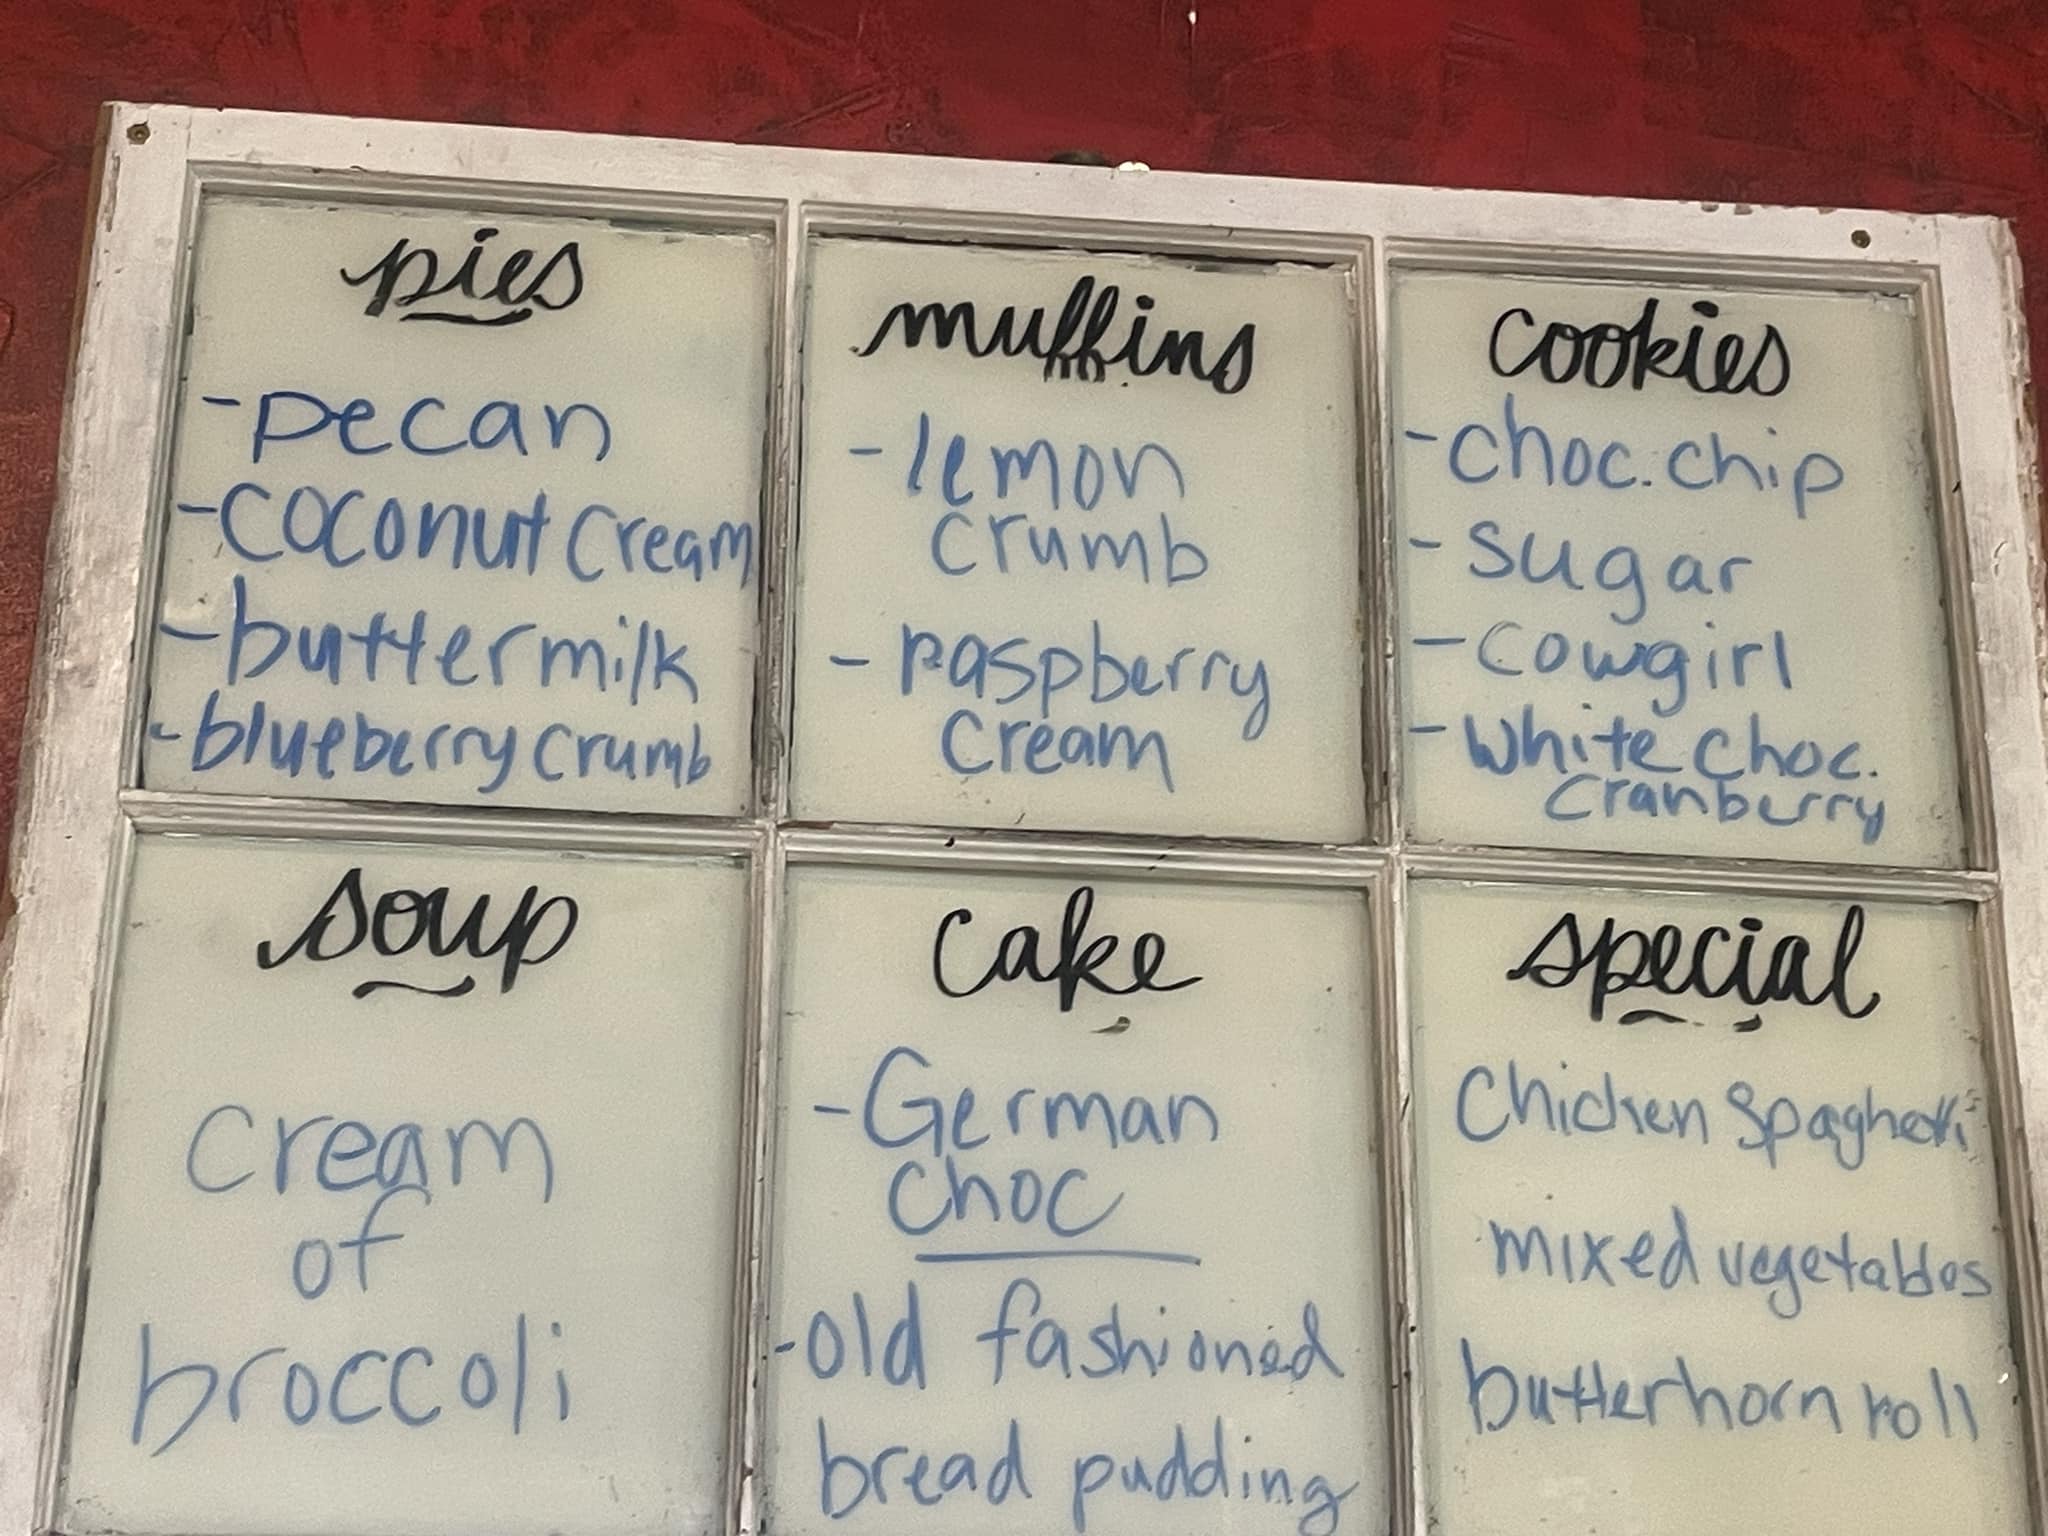 pies
-pecan
-coconut cream
-buttermilk
-blueberry crumb
muffins
-lemon
crumb
-raspberry
cream
cookies
-choc. chip
-sugar
-cowgirl
-white choc.
cranberry
soup
cream
of
broccoli
cake
-German
choc
-old fashioned
bread pudding
special
Chicken Spaghetti
mixed vegetables
butterhorn roll